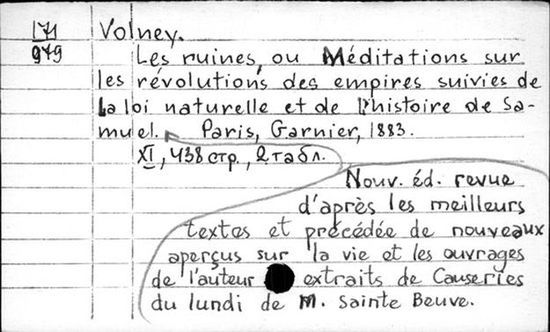 171
979
Volney.
Les ruines, ou Méditations sur
les révolutions des empires suivies de
la loi naturelle et de l'histoire de Sa-
muel. Paris, Garnier, 1883.
XI, 438 стр., 2 табл.
Nouv. éd. revue
d'après les meilleurs
textes et précédée de nouveaux
aperçus sur la vie et les ouvrages
de l'auteur extraits de Causeries
du lundi de M. Sainte Beuve.